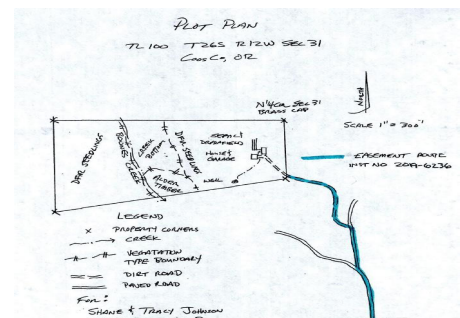 PLOT PLAN
TL 100 T26S R12W SEC 31
COOS CO, OR
N 1/4 COR SEC 31
BRASS CAP
NORTH
SCALE 1" = 300'
EASEMENT ROUTE
INST NO 2019-6236
DFIR SEEDLINGS
CREEK
CREEK BOTTOM
DFIR SEEDLINGS
ALDER TIMBER
SEPTIC/
DRAINFIELD
HOUSE &
GARAGE
WELL
LEGEND
PROPERTY CORNERS
CREEK
VEGETATION
TYPE BOUNDARY
DIRT ROAD
PAVED ROAD
FOR:
SHANE & TRACY JOHNSON